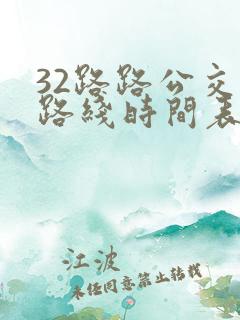 32路路公交
路綫時間表
江波
未经同意禁止转载